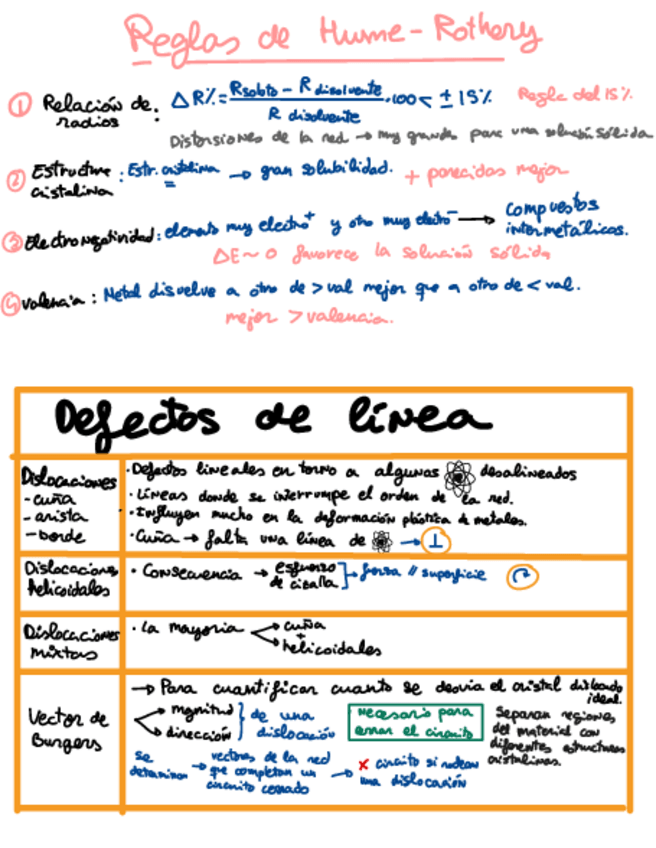 Reglas de Hume-Rothery
① Relación de radios: ΔR% = (Rsoluto - R disolvente / R disolvente) · 100 < ± 15% Regla del 15%
Distorsiones de la red → muy grandes para una solución sólida
② Estructura cristalina: Estr. cristalina = → gran solubilidad. + parecidas mejor
③ Electronegatividad: elemento muy electro⁺ y otro muy electro⁻ → compuestos intermetálicos.
ΔE ~ 0 favorece la solución sólida
④ Valencia: Metal disuelve a otro de > val mejor que a otro de < val.
mejor > valencia.
Defectos de línea
Dislocaciones
- cuña
- arista
- borde
· Defectos lineales en torno a algunos ⚛ desalineados
· Líneas donde se interrumpe el orden de la red.
· Influyen mucho en la deformación plástica de metales.
· Cuña → falta una línea de ⚛ → ⊥
Dislocaciones helicoidales
· Consecuencia → esfuerzo de cizalla] → fuerza // superficie ↷
Dislocaciones mixtas
· La mayoría
cuña
+
helicoidales
Vector de Burgers
→ Para cuantificar cuanto se desvía el cristal dislocado ideal.
magnitud
dirección
} de una dislocación
Necesario para cerrar el circuito
Separan regiones del material con diferentes estructuras cristalinas.
Se determinan → vectores de la red que completan un circuito cerrado → × circuito si rodean una dislocación